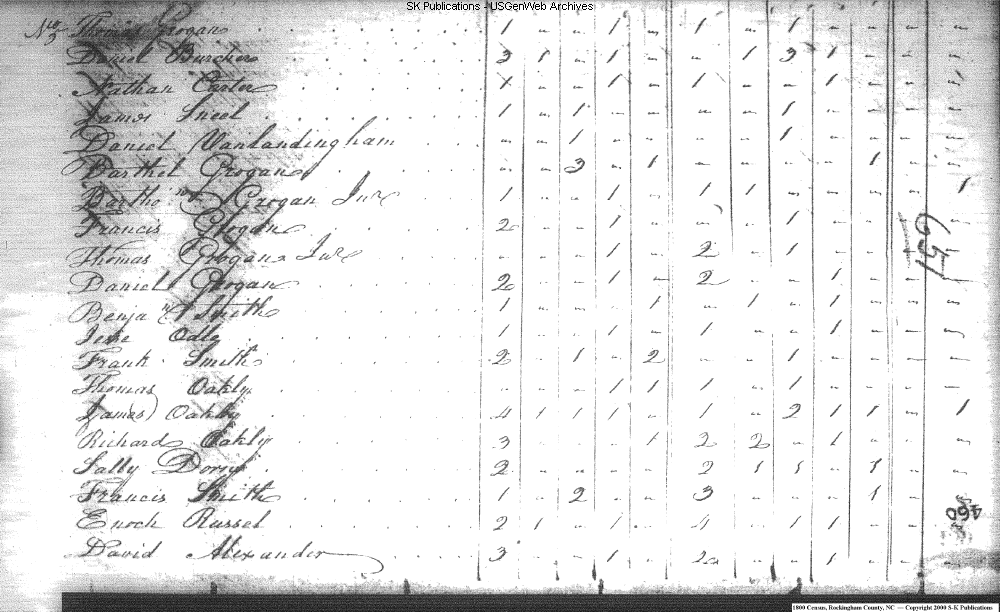 SK Publications - USGenWeb Archives
No 3 Thomas Grogan 1 - - 1 - 1 - 1 - - -
Daniel Burcher 3 1 - 1 - - 1 3 1 - -
Nathan Carter 1 - - 1 - 1 - 1 - - -
James Sneel 1 - 1 - - - - 1 - - -
Daniel Vanlandingham - - 1 - - - - 1 - - -
Barthel Grogan - - 3 - 1 - - - - 1 - -
Bartho Grogan Junr 1 - - 1 - 1 1 - - - - 1
Francis Grogan 2 - - 1 - - - 1 - - -
Thomas Grogan Jur - - - 1 - 2 - 1 - - -
Daniel Grogan 2 - - 1 - 2 - - 1 - - -
651
Benja Smith 1 - - - 1 - 1 - 1 - -
Oakly 1 - - - - 1 - - 1 - -
Frank Smith 2 - 1 - 2 - - 1 - - - -
Thomas Oakly - - - 1 1 1 - 1 - -
James Oakly 4 1 1 1 - 1 - 2 1 1 - 1
Richard Oakly 3 - - - 1 2 2 - 1 - - -
Sally Dorsy 2 - - - - 2 1 1 - 1 - -
Francis Smith 1 - 2 - - 3 - - - 1 - -
Enoch Russel 2 1 - 1 - 4 - 1 1 - -
460
David Alexander 3 - - 1 - 2 - - 1 - - -
1800 Census, Rockingham County, NC — Copyright 2000 S-K Publications